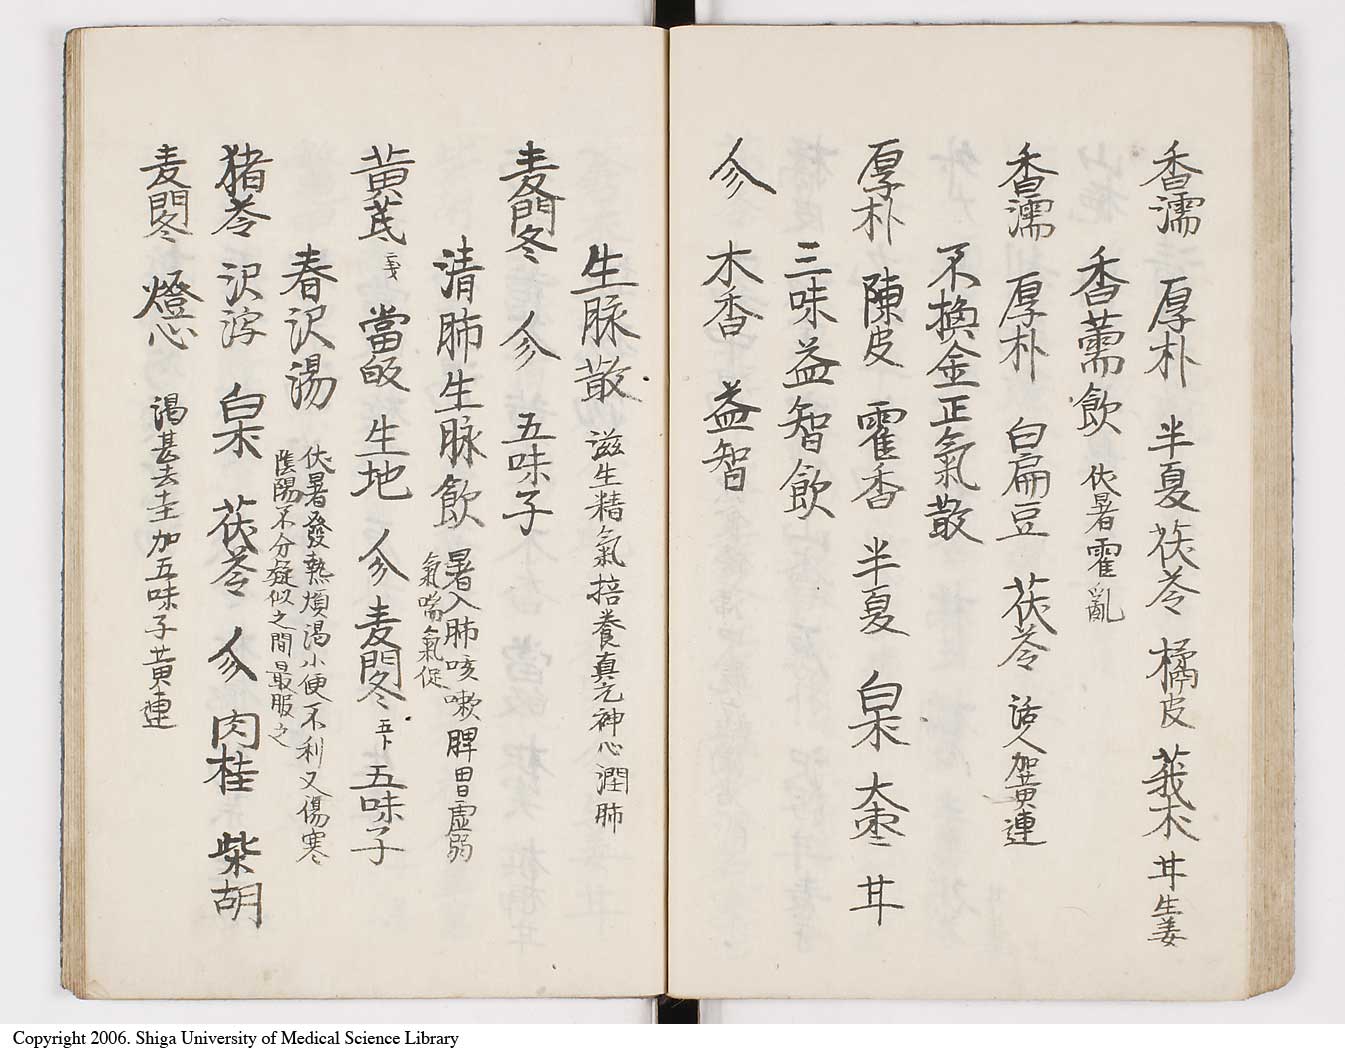 香濡 厚朴 半夏 茯苓 橘皮 莪朮 甘 生姜
香薷飲 伏暑霍亂
香濡 厚朴 白扁豆 茯苓 活人加黄連
不換金正氣散
厚朴 陳皮 霍香 半夏 白朮 大棗 甘
三味益智飲
参 木香 益智
生脉散 滋生精氣培養真元神心潤肺
麦門冬 参 五味子
清肺生脉飲 暑入肺咳嗽脾胃虚弱
氣喘氣促
黄芪 當皈 生地 参 麦門冬 五味子
春沢湯 伏暑發熱煩渇小便不利又傷寒
陰陽不分疑似之間最服之
猪苓 沢瀉 白朮 茯苓 参 肉桂 柴胡
麦門冬 燈心 渇甚去圭加五味子黄連
Copyright 2006. Shiga University of Medical Science Library